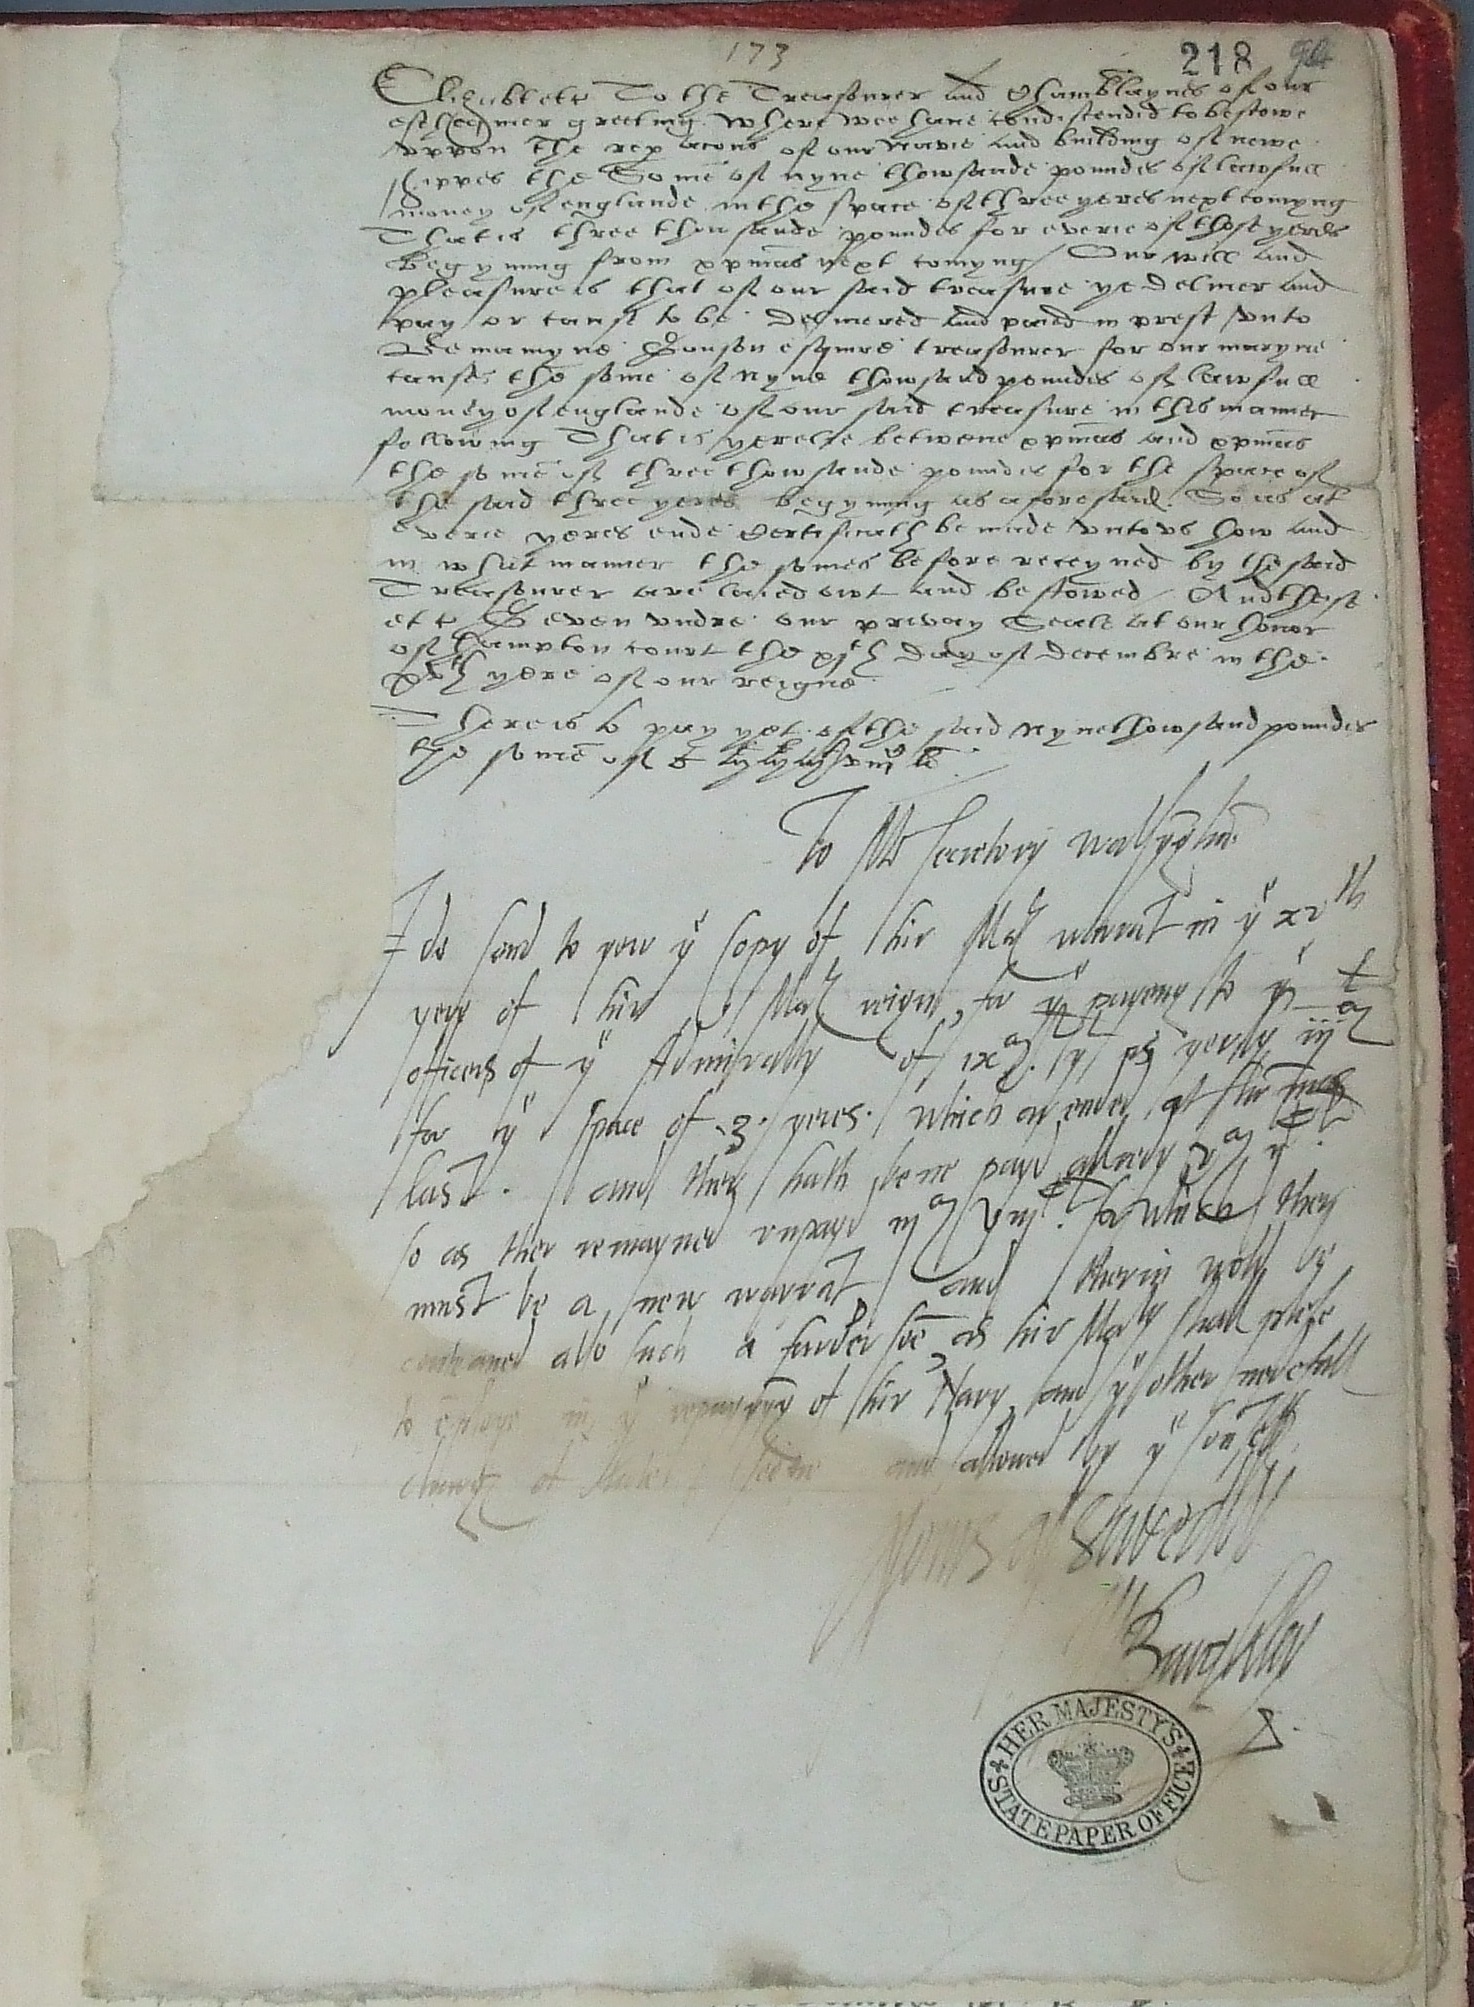 173
218
Elizabeth To the Treasourer and Chamblaynes of our
eschequer greeting. Where wee have condistendid to bestowe
uppon the rep acons of our Navie and building of newe
shippes the Some of nyne thowsande poundes of lawfull
money of englande in the space of three yeres next comyng
That is three thousande poundes for everie of those yeres
begynning from xpmas next comyng / Our will and
pleasure is that of our said treasure ye deliver and
pay or cause to be delivered and paied in prest unto
Beniamyne Gonson esquire treasourer for our maryne
causes the some of nyne thowsand poundes of lawfull
money of englande of our said treasure in this manner
following That is yerelie betwene xpmas and xpmas
the some of three thowsande poundes for the space of
the said three yeres begynning as aforesaid. So as at
everie yeres ende certificath be made unto us how and
in what manner the somes before receyved by the said
Treasourer are laied owt and bestowed / And these
etc Geven undre our privay Seale at our honor
of hampton court the xjth day of decembre in the
xvth yere of our reigne
There is to pay yet of the said nyne thowsand poundes
the some of
To Mr Secretory Walsyngham
I do send to yow ye copy of hir Maty warrat in ye xvth
yere of hir Maty reign, for ye payeng to ye
officers of ye Admiralty of ixm li yerly iijm
for ye space of .3. yeres. which ar ended at
last. and they hath bene payd allredy vm
so as ther remayned unpayd iijm viijc. for which they
must be a new warrat and therin wold be
conteaned also such a furder some, as hir Maty shall plese
to employe in ye repayryng of hir Navy and ye other nedefull
chargs of and allowed by ye
Yours assuredly
W Burghley
HER MAJESTY'S
STATE PAPER OFFICE